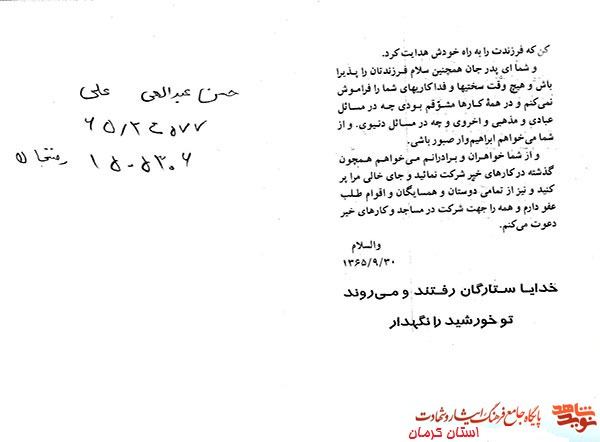 کن که فرزندت را به راه خودش هدایت کرد.
و شما ای پدر جان همچنین سلام فرزندتان را پذیرا
باش و هیچ وقت سختیها و فداکاریهای شما را فراموش
نمی‌کنم و در همهٔ کارها مشوّقم بودی چه در مسائل
عبادی و مذهبی و اخروی و چه در مسائل دنیوی. و از
شما می‌خواهم ابراهیم‌وار صبور باشی.
و از شما خواهران و برادرانم می‌خواهم همچون
گذشته در کارهای خیر شرکت نمائید و جای خالی مرا پر
کنید و نیز از تمامی دوستان و همسایگان و اقوام طلب
عفو دارم و همه را جهت شرکت در مساجد و کارهای خیر
دعوت می‌کنم.
والسلام
۱۳۶۵/۹/۳۰
خدایا ستارگان رفتند و می‌روند
تو خورشید را نگهدار
حسن عبدالهی علی
رفسنجان
نوید شاهد
پایگاه جامع فرهنگ ایثار و شهادت
استان کرمان